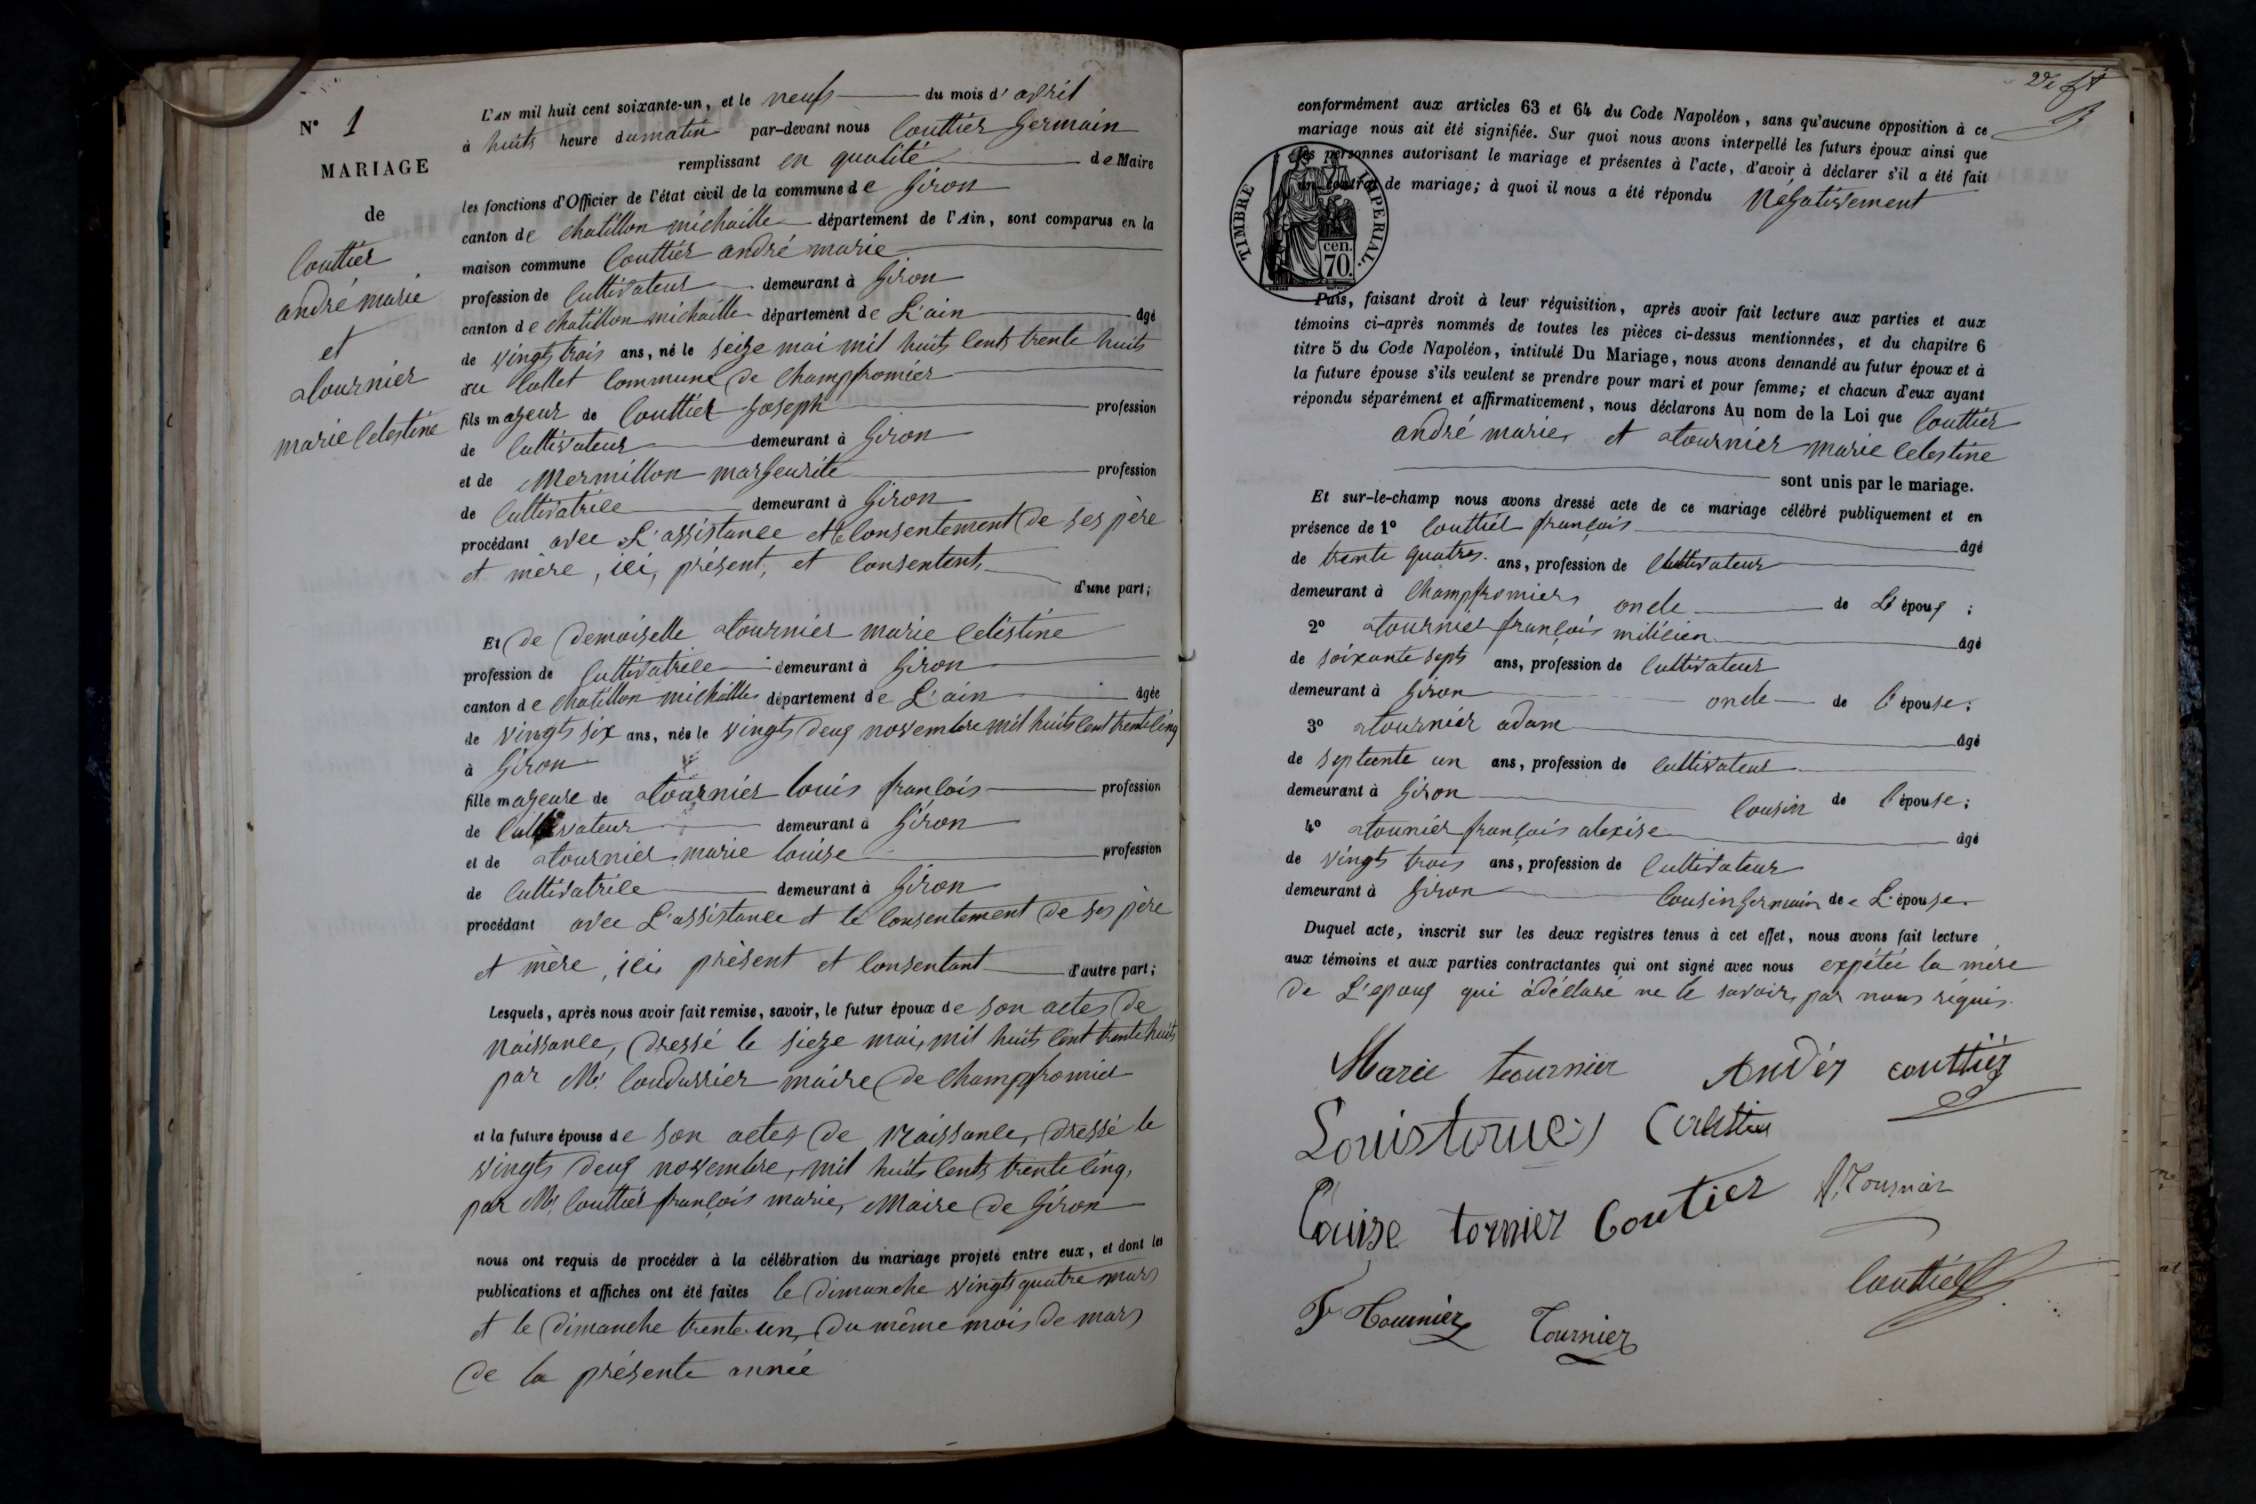 N° 1
MARIAGE
de
Couttier
andré marie
et
tournier
marie Celestine
L'AN mil huit cent soixante-un, et le neufs du mois d' avril
à huits heure du matin par-devant nous Couttier Germain
remplissant en qualité de Maire
les fonctions d'Officier de l'état civil de la commune de Giron
canton de chatillon michaille département de l'Ain, sont comparus en la
maison commune Couttier andré marie
profession de Cultivateur demeurant à Giron
canton de chatillon michaille département de L'ain âgé
de vingts trois ans, né le seize mai mil huits Cents trente huits
au Collet Commune de Champfromier
fils majeur de Couttier Joseph profession
de Cultivateur demeurant à Giron
et de Mermillon margeurite profession
de Cultivatrice demeurant à Giron
procédant avec L'assistance et le Consentement de ses père
et mère, ici, présent, et Consentent d'une part;
Et de Demoiselle tournier marie Celéstine
profession de Cultivatrice demeurant à Giron
canton de chatillon michaille département de L'ain âgée
de vingts six ans, née le vingts deux novembre mil huits Cent trente Cinq
à Giron
fille majeure de tournier louis francois profession
de Cultivateur demeurant à Giron
et de tournier marie louise profession
de Cultivatrice demeurant à Giron
procédant avec L'assistance et le Consentement de ses père
et mère, ici, présent et Consentant d'autre part;
Lesquels, après nous avoir fait remise, savoir, le futur époux de son actes de
naissance, dressé le sieze mai, mil huits Cent trente huits
par Mr Coudurrier maire de Champfromier
et la future épouse de son actes de Naissance, dressé le
vingts deux novembre, mil huits Cents trente Cinq,
par Mr Couttier françois marie, Maire de Giron
nous ont requis de procéder à la célébration du mariage projeté entre eux, et dont les
publications et affiches ont été faites le dimanche vingts quatre mars
et le dimanche trente un, du même mois de mars
de la présente année
conformément aux articles 63 et 64 du Code Napoléon, sans qu'aucune opposition à ce
mariage nous ait été signifiée. Sur quoi nous avons interpellé les futurs époux ainsi que
les personnes autorisant le mariage et présentes à l'acte, d'avoir à déclarer s'il a été fait
un contrat de mariage; à quoi il nous a été répondu Négativement
TIMBRE IMPERIAL.
cen.
70.
Puis, faisant droit à leur réquisition, après avoir fait lecture aux parties et aux
témoins ci-après nommés de toutes les pièces ci-dessus mentionnées, et du chapitre 6
titre 5 du Code Napoléon, intitulé Du Mariage, nous avons demandé au futur époux et à
la future épouse s'ils veulent se prendre pour mari et pour femme; et chacun d'eux ayant
répondu séparément et affirmativement, nous déclarons Au nom de la Loi que Couttier
andré marie, et tournier marie Celestine
sont unis par le mariage.
Et sur-le-champ nous avons dressé acte de ce mariage célébré publiquement et en
présence de 1° Couttier françois âgé
de trente quatres ans, profession de Cultivateur
demeurant à Champfromier, oncle de L'époux;
2° tournier françois milicien âgé
de soixante septs ans, profession de Cultivateur
demeurant à Giron oncle de l'épouse;
3° tournier adam âgé
de septente un ans, profession de Cultivateur
demeurant à Giron Cousin de l'épouse;
4° tounier françois alexise âgé
de vingts trois ans, profession de Cultivateur
demeurant à Giron Cousin Germain de L'épouse.
Duquel acte, inscrit sur les deux registres tenus à cet effet, nous avons fait lecture
aux témoins et aux parties contractantes qui ont signé avec nous expétée la mère
de L'epoux qui à déclaré ne le savoir, par nous réquis.
Marie tournier Andér couttier
Louise tornier Coutier A. Tournier
Couttier
F Tournier Tournier